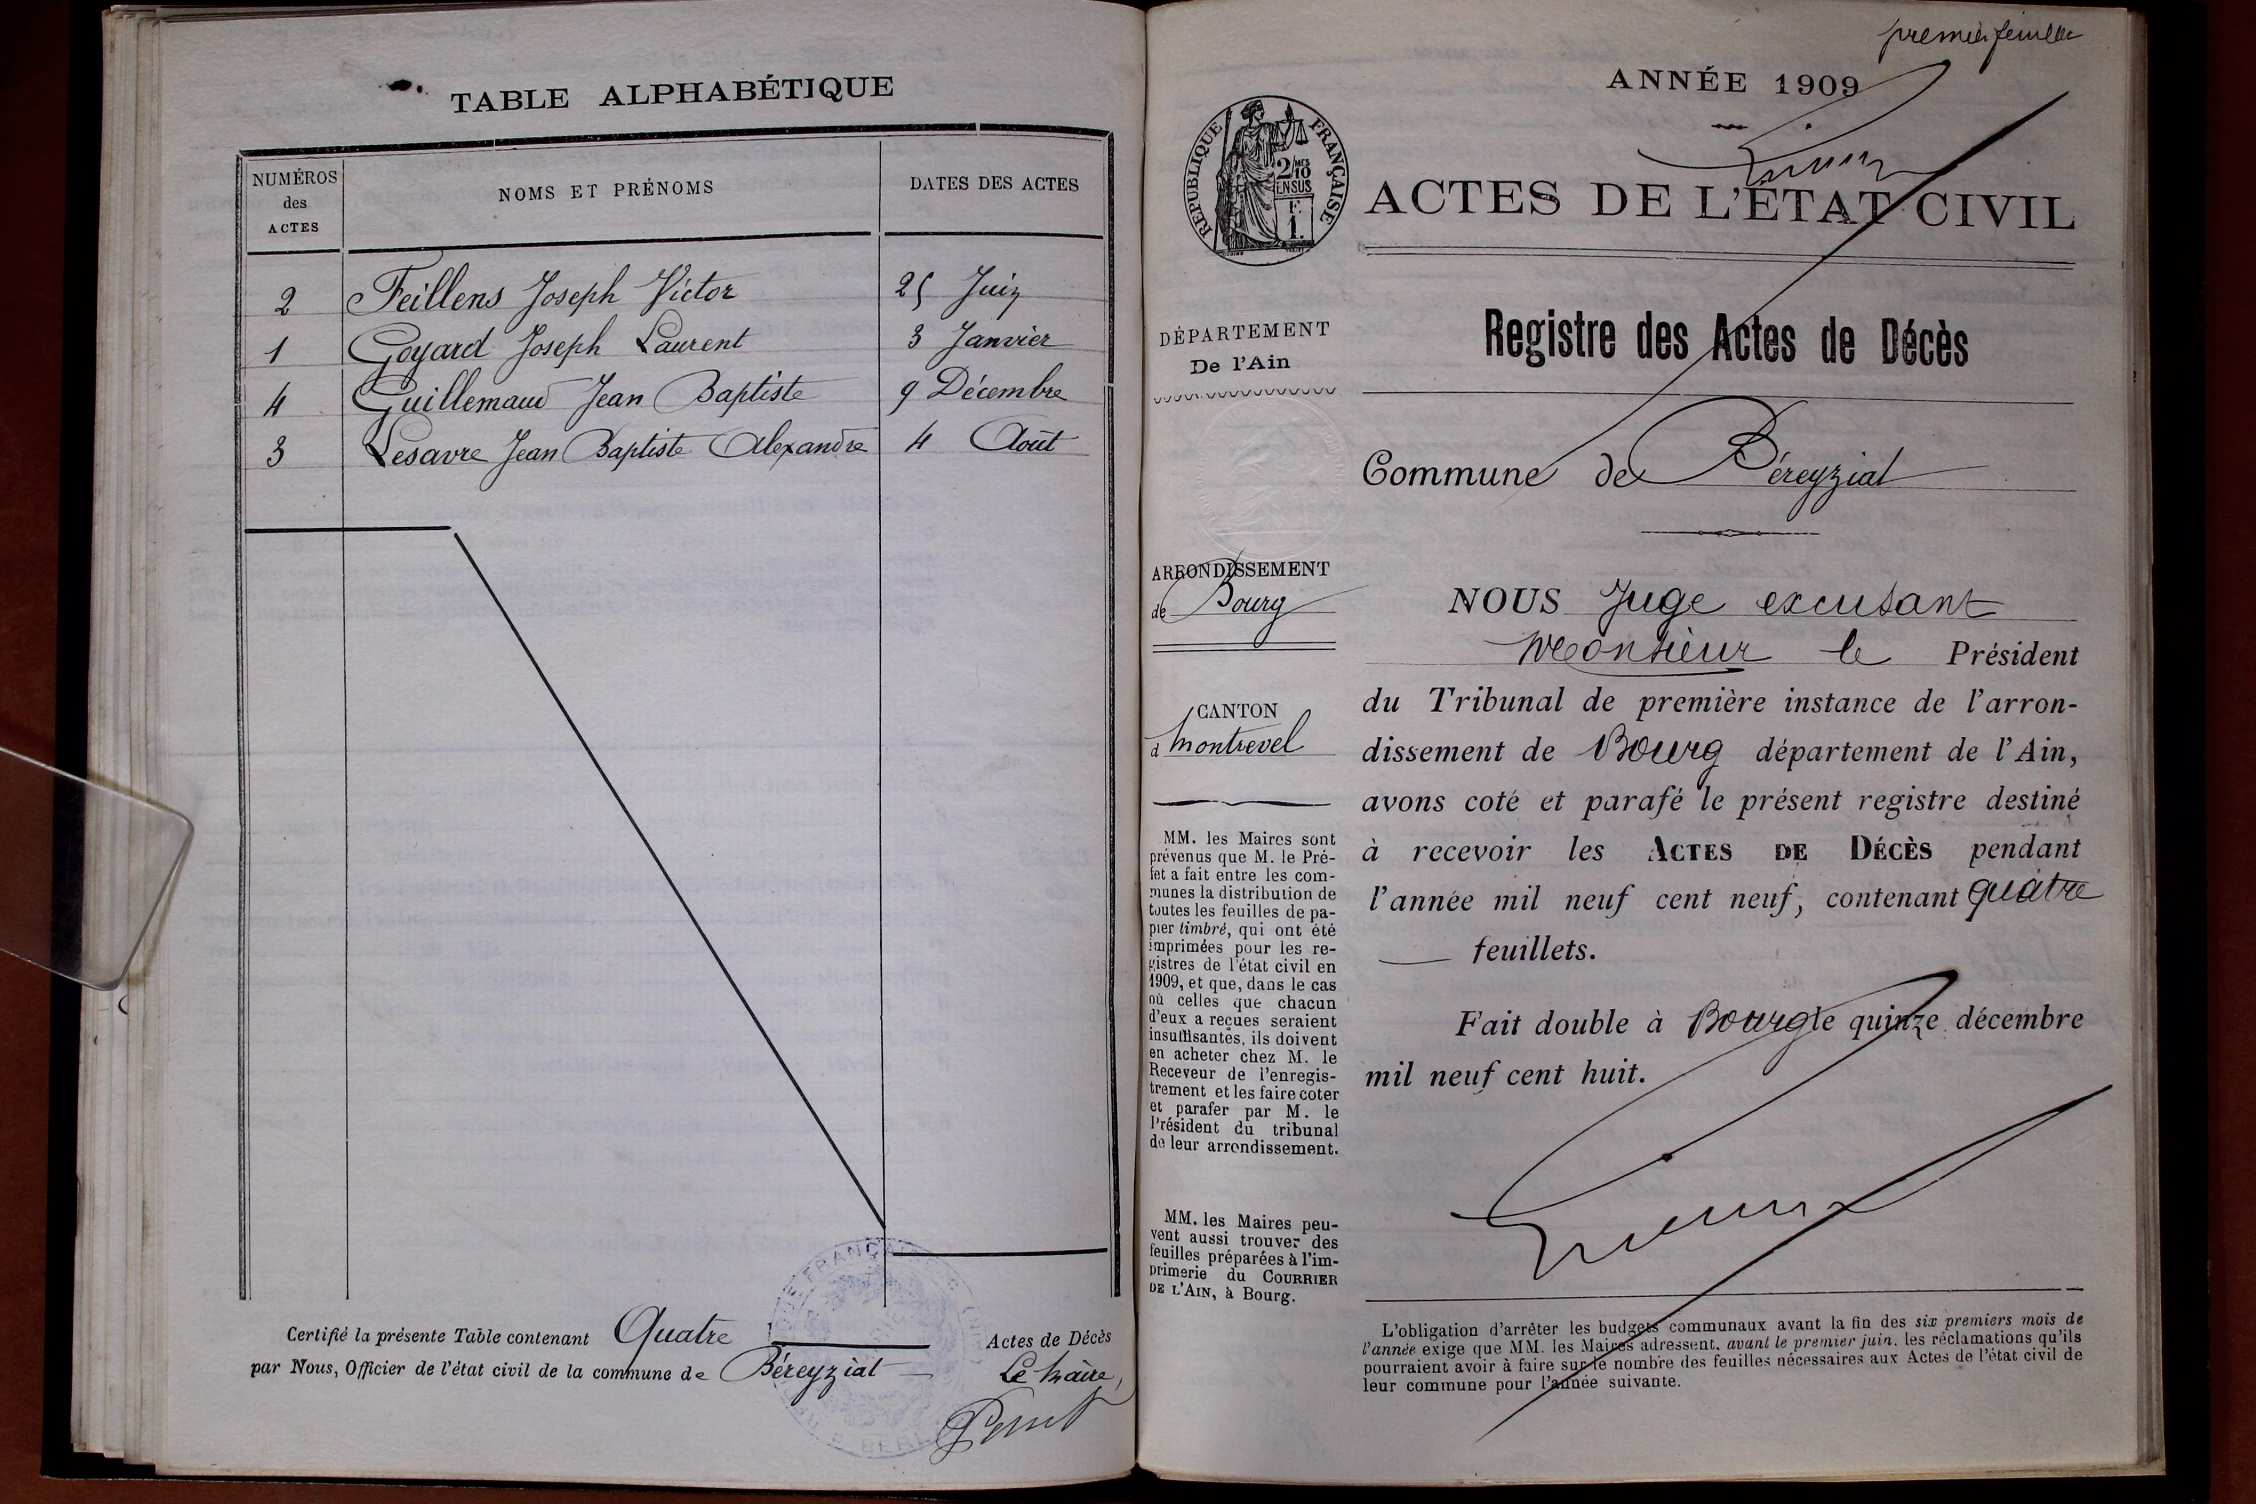 TABLE ALPHABÉTIQUE
NUMÉROS des ACTES NOMS ET PRÉNOMS DATES DES ACTES
2 Feillens Joseph Victor 25 Juin
1 Goyard Joseph Laurent 3 Janvier
4 Guillemaud Jean Baptiste 9 Décembre
3 Lesavre Jean Baptiste Alexandre 4 Août
Certifié la présente Table contenant Quatre Actes de Décès
par Nous, Officier de l'état civil de la commune de Béreyziat Le Maire,
premier feuillet
ANNÉE 1909
RÉPUBLIQUE FRANÇAISE
2/10
EN SUS
F.
1.
ACTES DE L'ÉTAT CIVIL
DÉPARTEMENT
De l'Ain
Registre des Actes de Décès
Commune de Béreyziat
ARRONDISSEMENT
de Bourg
CANTON
d Montrevel
MM. les Maires sont
prévenus que M. le Pré-
fet a fait entre les com-
munes la distribution de
toutes les feuilles de pa-
pier timbré, qui ont été
imprimées pour les re-
gistres de l'état civil en
1909, et que, dans le cas
où celles que chacun
d'eux a reçues seraient
insuffisantes, ils doivent
en acheter chez M. le
Receveur de l'enregis-
trement et les faire coter
et parafer par M. le
Président du tribunal
de leur arrondissement.
MM. les Maires peu-
vent aussi trouver des
feuilles préparées à l'im-
primerie du COURRIER
DE L'AIN, à Bourg.
NOUS Juge excusant
Monsieur le Président
du Tribunal de première instance de l'arron-
dissement de Bourg département de l'Ain,
avons coté et parafé le présent registre destiné
à recevoir les ACTES DE DÉCÈS pendant
l'année mil neuf cent neuf, contenant quatre
feuillets.
Fait double à Bourg le quinze décembre
mil neuf cent huit.
L'obligation d'arrêter les budgets communaux avant la fin des six premiers mois de
l'année exige que MM. les Maires adressent, avant le premier juin, les réclamations qu'ils
pourraient avoir à faire sur le nombre des feuilles nécessaires aux Actes de l'état civil de
leur commune pour l'année suivante.